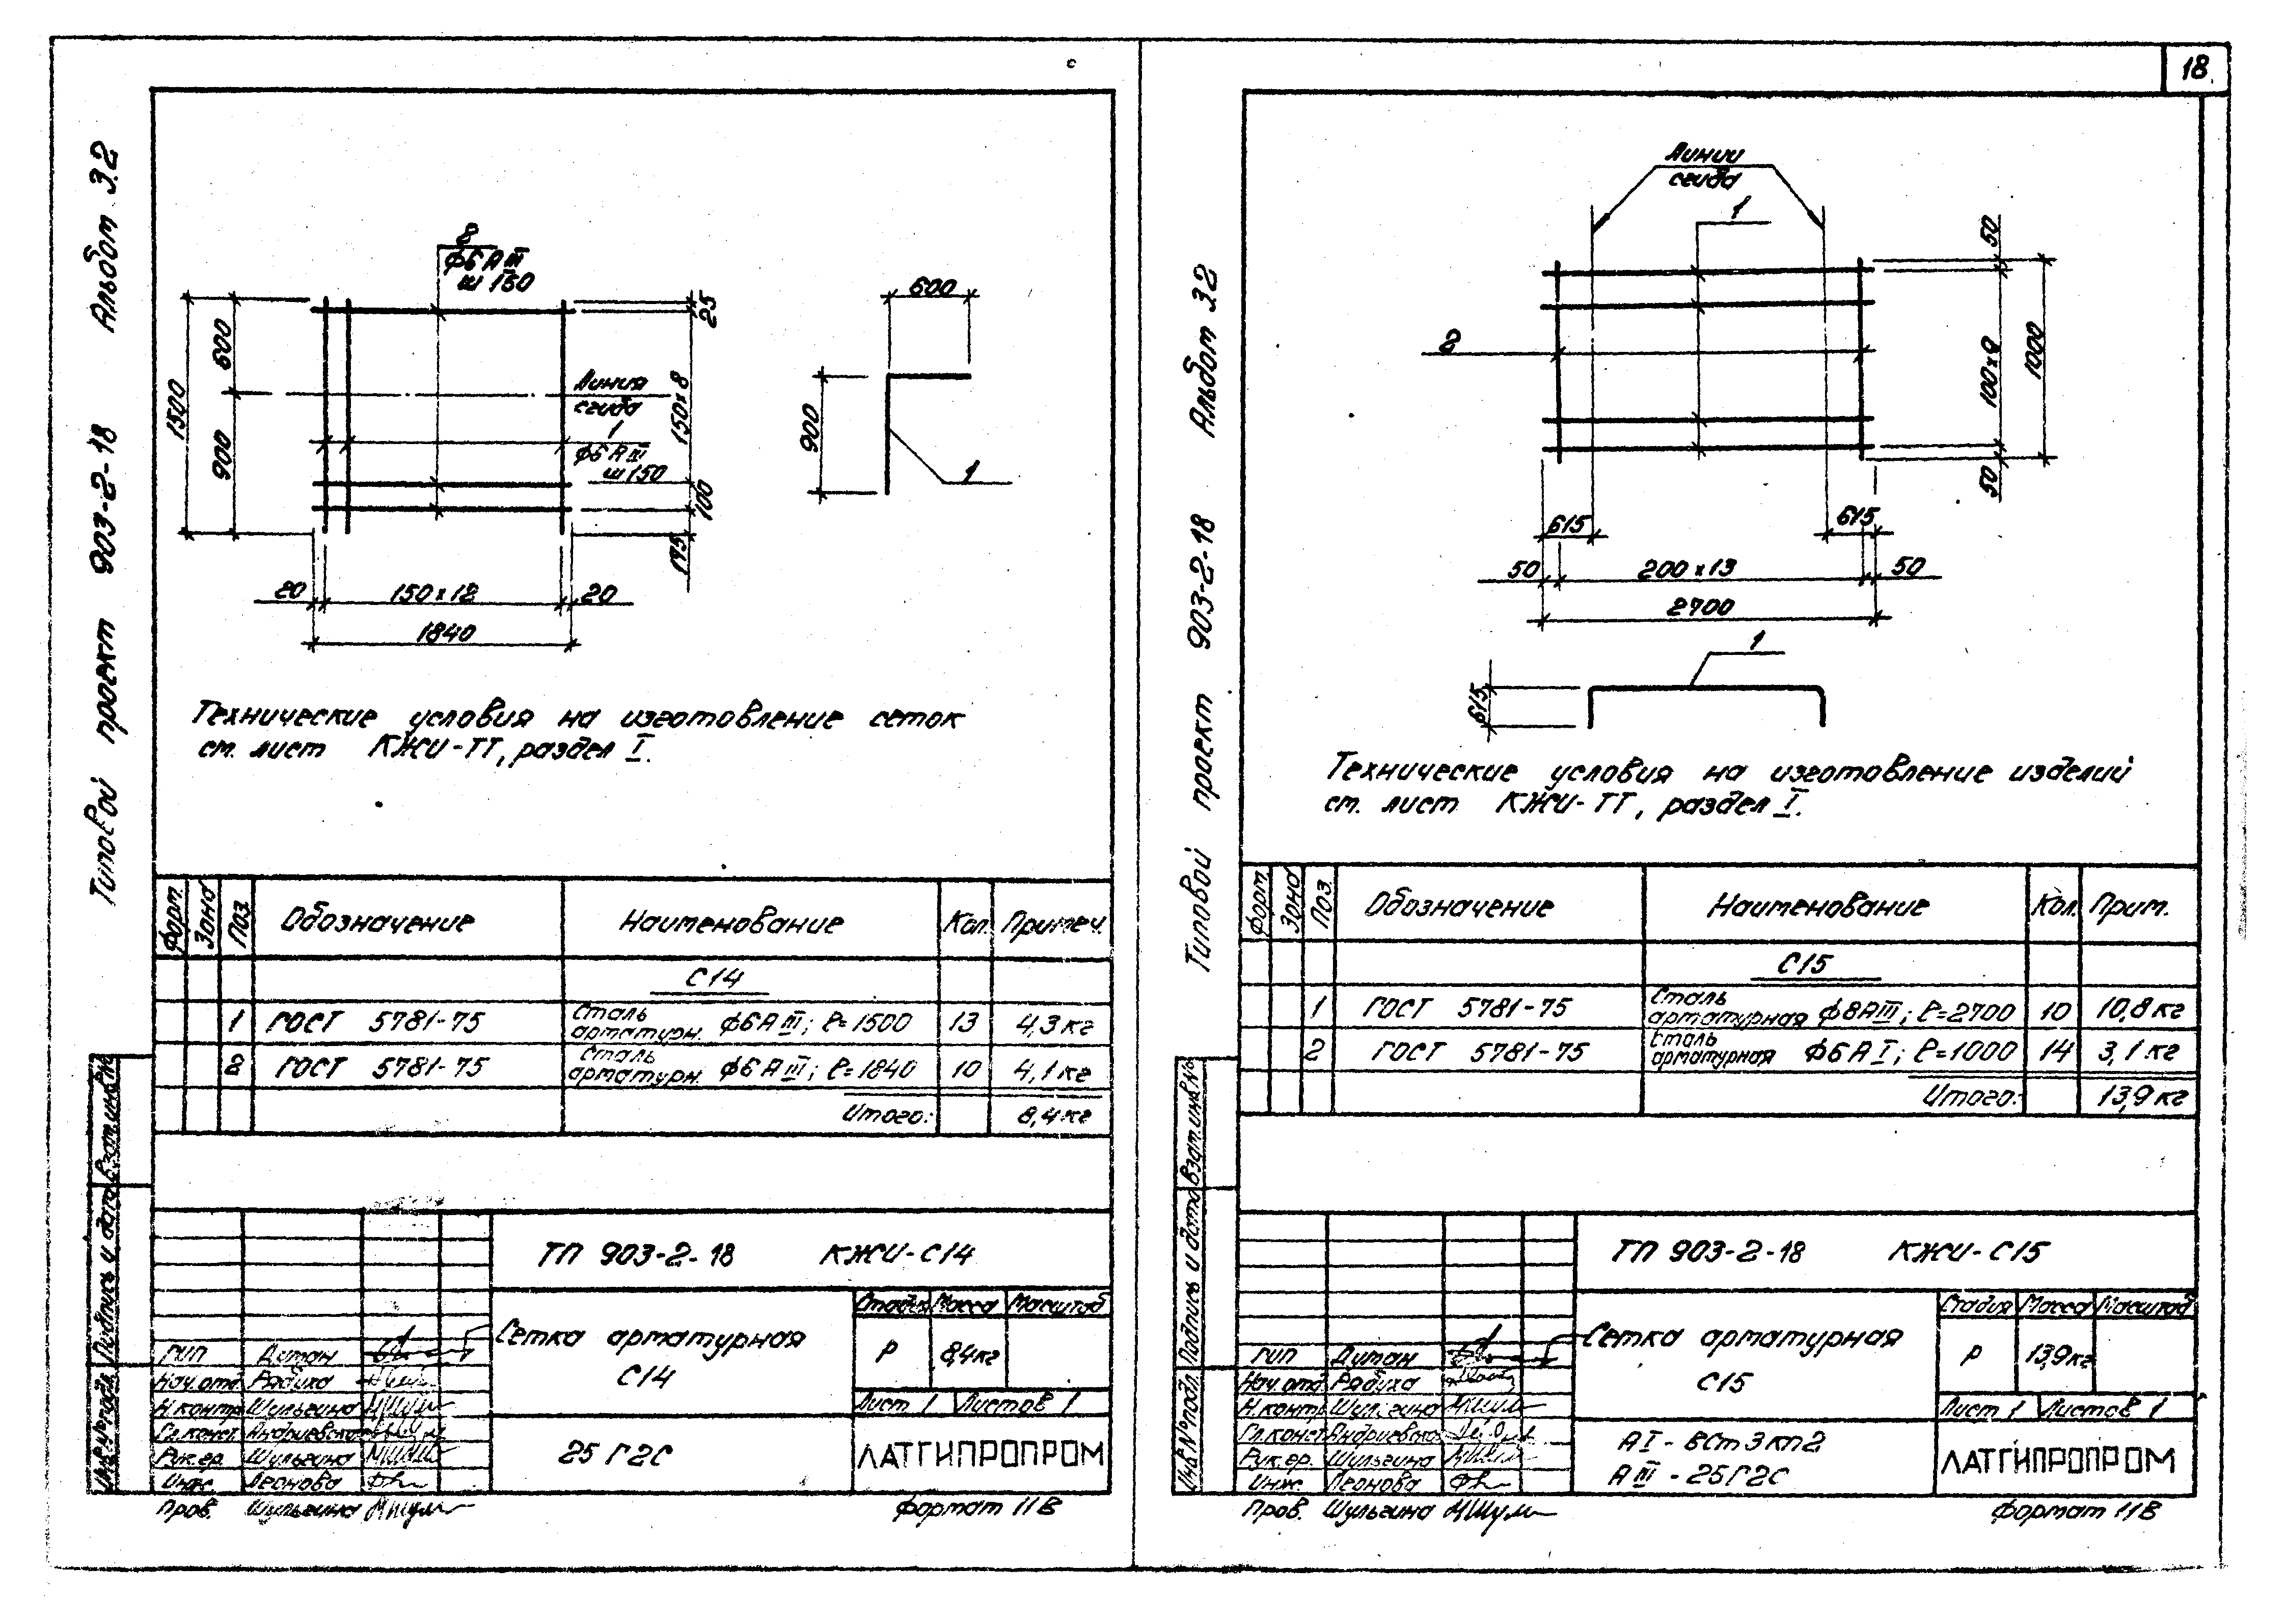 18
Альбом 3.2
Типовой проект 903-2-18
2
ф6 А III
ш 150
1500
600
900
25
150×8
100
175
Линия
сгиба
1
ф6 А III
ш 150
20
150×12
20
1840
600
900
1
Технические условия на изготовление сеток
см. лист КЖИ-ТТ, раздел I.
Форм. Зона Поз. Обозначение Наименование Кол. Примеч.
С14
1 ГОСТ 5781-75 Сталь арматурн. ф6 А III; ℓ=1500 13 4,3 кг
2 ГОСТ 5781-75 Сталь арматурн. ф6 А III; ℓ=1840 10 4,1 кг
Итого: 8,4 кг
Инв.№подл. Подпись и дата Взам.инв.№
ТП 903-2-18 КЖИ-С14
Сетка арматурная
С14
Стадия Масса Масштаб
Р 8,4кг
Лист 1 Листов 1
ГИП Дитан
Нач.отд. Рябуха
Н.контр. Шульгина
Гл.конст. Андриевско
Рук.гр. Шульгина
Инж. Леонова
25 Г2С
ЛАТГИПРОПРОМ
Пров. Шульгина
Формат 11В
Альбом 3.2
Типовой проект 903-2-18
Линии
сгиба
1
2
50
100×9
1000
50
615
615
50
200×13
50
2700
1
615
Технические условия на изготовление изделий
см. лист КЖИ-ТТ, раздел I.
Форм. Зона Поз. Обозначение Наименование Кол. Прим.
С15
1 ГОСТ 5781-75 Сталь арматурная ф8АIII; ℓ=2700 10 10,8 кг
2 ГОСТ 5781-75 Сталь арматурная ф6 А I; ℓ=1000 14 3,1 кг
Итого: 13,9 кг
Инв.№подл. Подпись и дата Взам.инв.№
ТП 903-2-18 КЖИ-С15
Сетка арматурная
С15
Стадия Масса Масштаб
Р 13,9кг
Лист 1 Листов 1
ГИП Дитан
Нач.отд. Рябуха
Н.контр. Шульгина
Гл.конст. Андриевско
Рук.гр. Шульгина
Инж. Леонова
А I - ВСт 3 кп2
А III - 25Г2С
ЛАТГИПРОПРОМ
Пров. Шульгина
Формат 11В